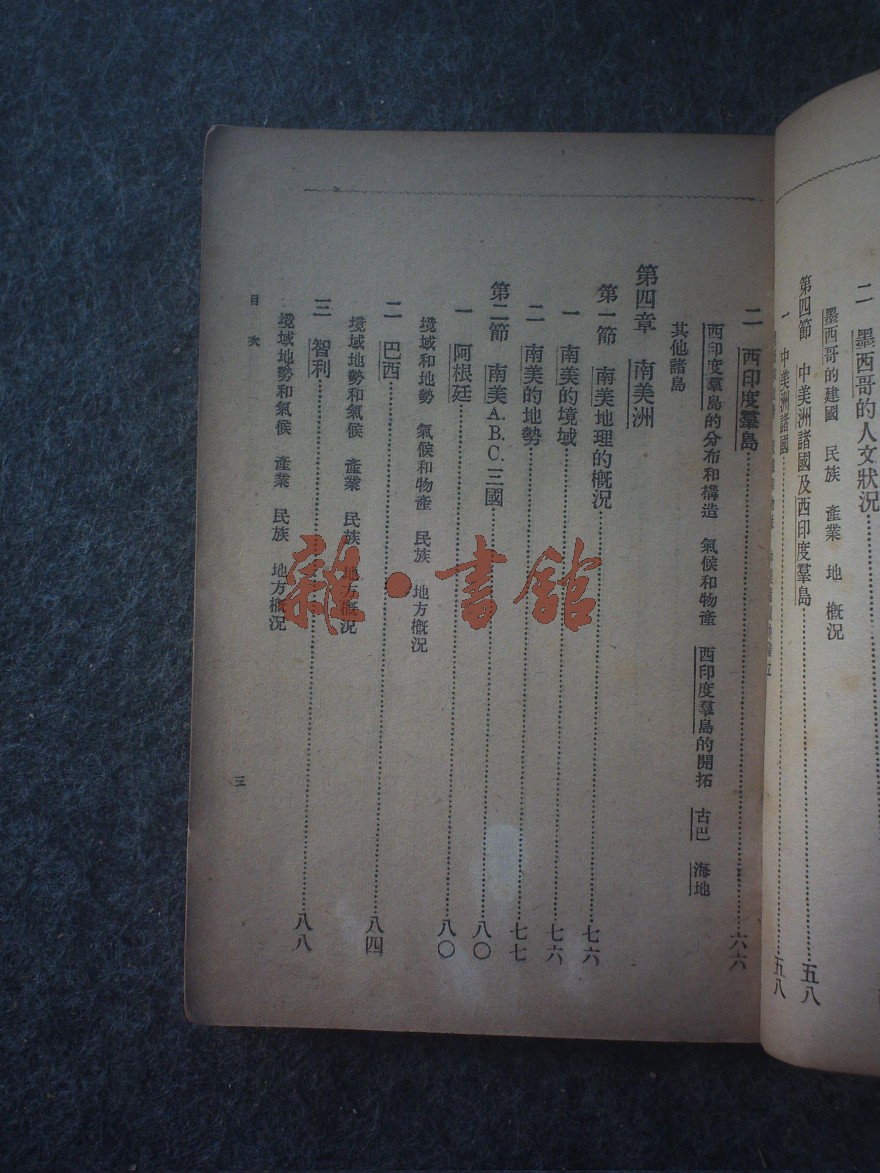 二 墨西哥的人文狀況
墨西哥的建國 民族 產業 地 概況
第四節 中美洲諸國及西印度羣島……五八
一 中美洲諸國……五八
二 西印度羣島……六六
西印度羣島的分布和構造 氣候和物產 西印度羣島的開拓 古巴 海地
其他諸島
第四章 南美洲
第一節 南美地理的概況……七六
一 南美的境域……七六
二 南美的地勢……七七
第二節 南美A.B.C.三國……八〇
一 阿根廷……八〇
境域和地勢 氣候和物產 民族 地方概況
二 巴西……八四
境域地勢和氣候 產業 民族 地方概況
三 智利……八八
境域地勢和氣候 產業 民族 地方概況
目次
三
雜·書館